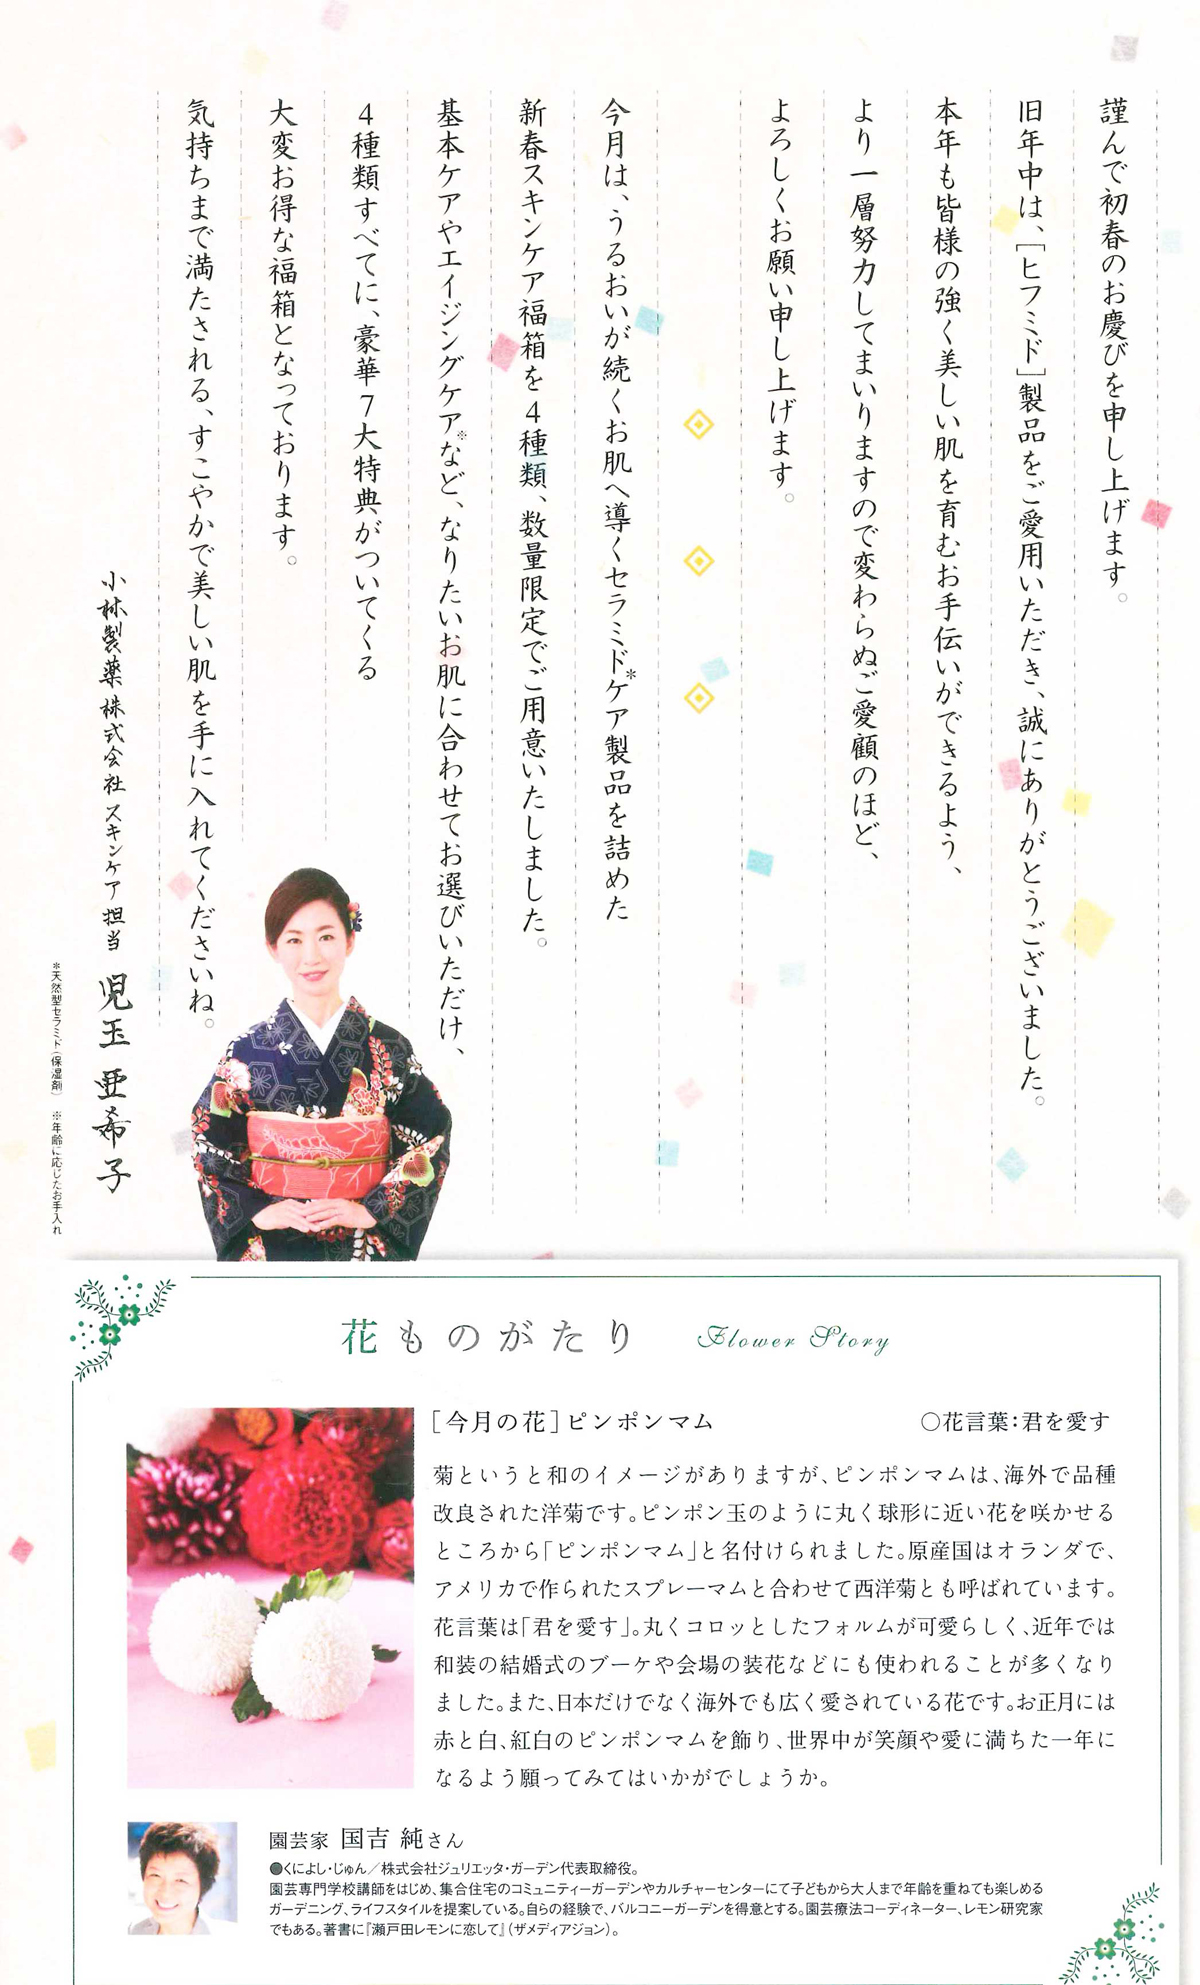 謹んで初春のお慶びを申し上げます。
旧年中は、［ヒフミド］製品をご愛用いただき、誠にありがとうございました。
本年も皆様の強く美しい肌を育むお手伝いができるよう、
より一層努力してまいりますので変わらぬご愛顧のほど、
よろしくお願い申し上げます。
今月は、うるおいが続くお肌へ導くセラミド＊ケア製品を詰めた
新春スキンケア福箱を４種類、数量限定でご用意いたしました。
基本ケアやエイジングケア※など、なりたいお肌に合わせてお選びいただけ、
４種類すべてに、豪華７大特典がついてくる
大変お得な福箱となっております。
気持ちまで満たされる、すこやかで美しい肌を手に入れてくださいね。
小林製薬株式会社 スキンケア担当 児玉 亜希子
＊天然型セラミド（保湿剤） ※年齢に応じたお手入れ
花ものがたり Flower Story
［今月の花］ピンポンマム ○花言葉：君を愛す
菊というと和のイメージがありますが、ピンポンマムは、海外で品種
改良された洋菊です。ピンポン玉のように丸く球形に近い花を咲かせる
ところから「ピンポンマム」と名付けられました。原産国はオランダで、
アメリカで作られたスプレーマムと合わせて西洋菊とも呼ばれています。
花言葉は「君を愛す」。丸くコロッとしたフォルムが可愛らしく、近年では
和装の結婚式のブーケや会場の装花などにも使われることが多くなり
ました。また、日本だけでなく海外でも広く愛されている花です。お正月には
赤と白、紅白のピンポンマムを飾り、世界中が笑顔や愛に満ちた一年に
なるよう願ってみてはいかがでしょうか。
園芸家 国吉 純さん
●くによし・じゅん／株式会社ジュリエッタ・ガーデン代表取締役。
園芸専門学校講師をはじめ、集合住宅のコミュニティーガーデンやカルチャーセンターにて子どもから大人まで年齢を重ねても楽しめる
ガーデニング、ライフスタイルを提案している。自らの経験で、バルコニーガーデンを得意とする。園芸療法コーディネーター、レモン研究家
でもある。著書に『瀬戸田レモンに恋して』（ザメディアジョン）。